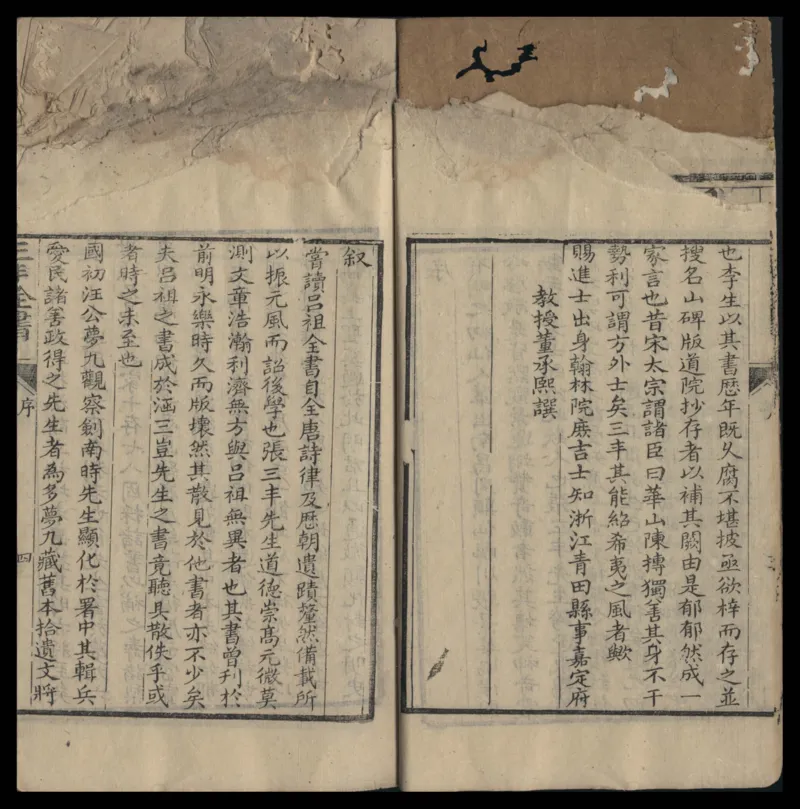 也李生以其書歷年既久腐不堪披亟欲梓而存之並
搜名山碑版道院抄存者以補其闕由是郁郁然成一
家言也昔宋太宗謂諸臣曰華山陳摶獨善其身不干
勢利可謂方外士矣三丰其能紹希夷之風者歟
賜進士出身翰林院庶吉士知浙江青田縣事嘉定府
教授董承熙譔
叙
嘗讀呂祖全書自全唐詩律及歷朝遺蹟釐然備載所
以振元風而詔後學也張三丰先生道德崇高元微莫
測文章浩瀚利濟無方與呂祖無異者也其書曾刊於
前明永樂時久而版壞然其散見於他書者亦不少矣
夫呂祖之書成於涵三豈先生之書竟聽其散佚乎或
者時之未至也
國初汪公夢九觀察劍南時先生顯化於署中其輯兵
愛民諸善政得之先生者為多夢九藏舊本拾遺文將
三丰全書
序
四